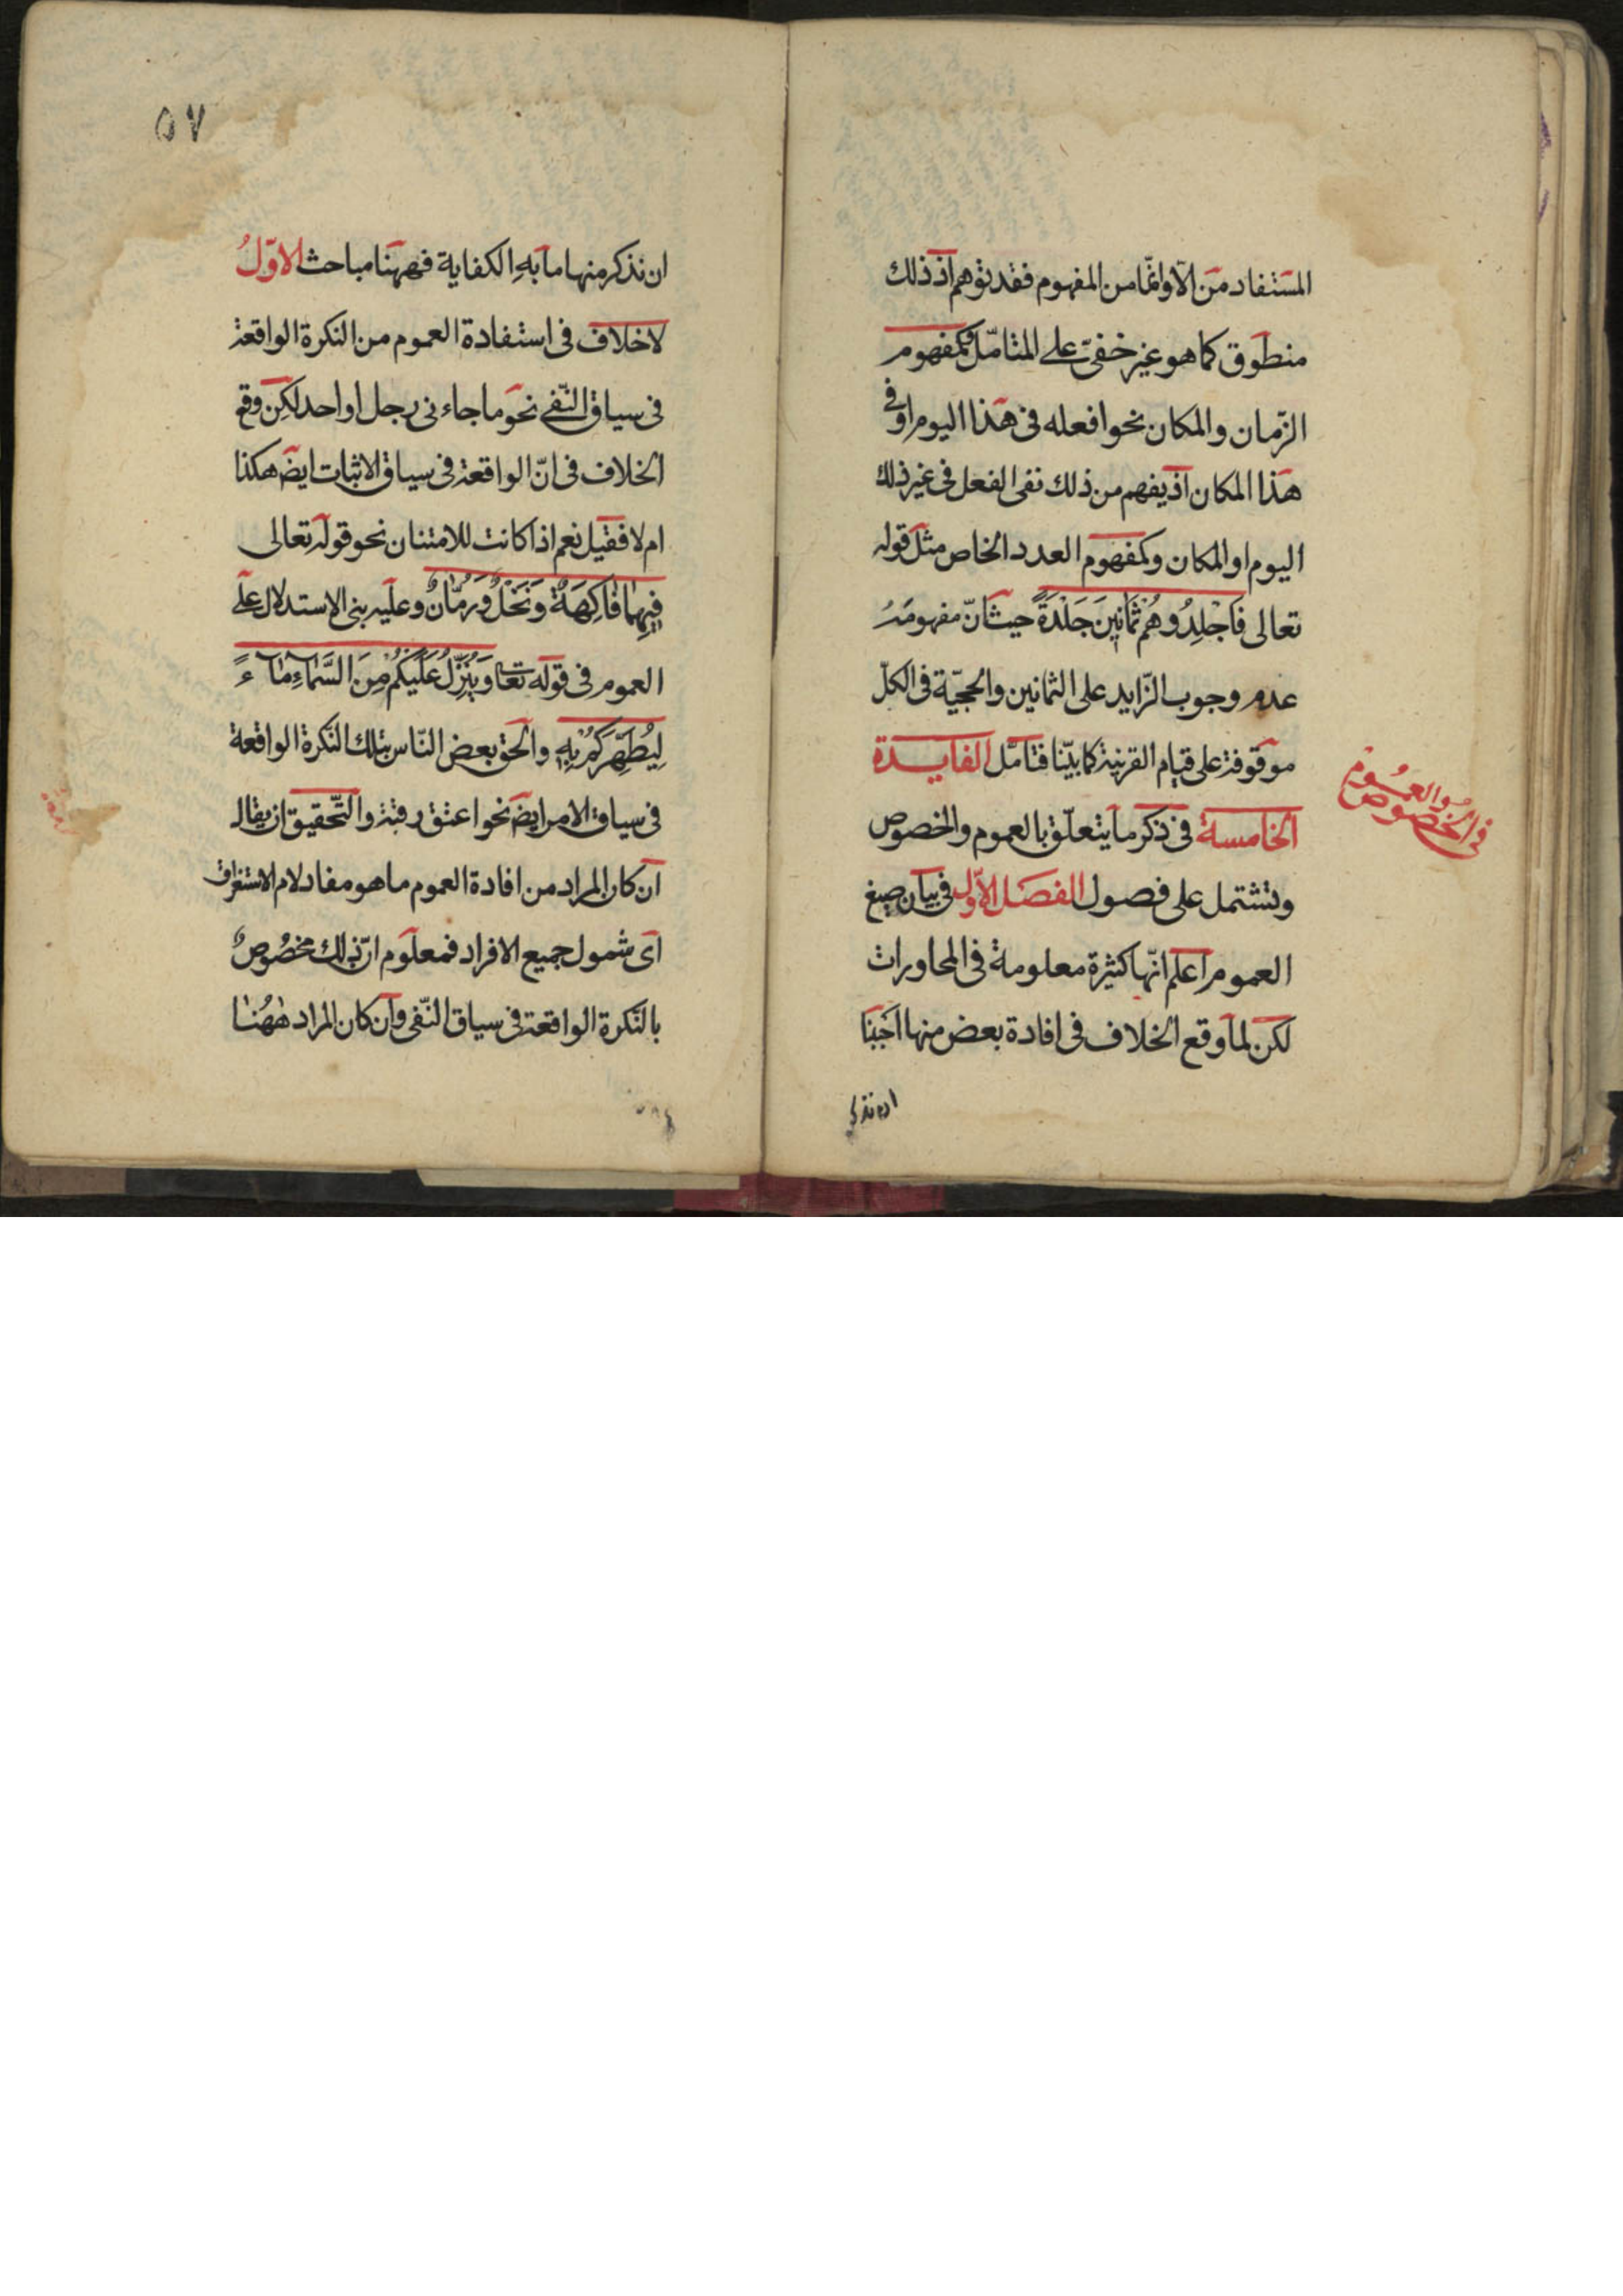 المستفاد من الّا وانّما من المفهوم فقد توهم اذ ذلك
منطوق كما هو غير خفىّ على المتامّل وكمفهوم
الزّمان والمكان نحو افعله فى هذا اليوم او فى
هذا المكان اذ يفهم من ذلك نفى الفعل فى غير ذلك
اليوم او المكان وكمفهوم العدد الخاص مثل قوله
تعالى فَاجْلِدُوهُمْ ثَمَانِينَ جَلْدَةً حيث انّ مفهومَهُ
عدم وجوب الزّايد على الثمانين والحجيّة فى الكلّ
موقوفة على قيام القرنية كما بيّنا فتامّل الفايدة
الخامسة فى ذكر ما يتعلّق بالعموم والخصوص
فى العموم والخصوص
وتشتمل على فصول الفصل الاوّل فى بيان صيغ
العموم اعلم انّها كثيرة معلومة فى المحاورات
لكن لما وقع الخلاف فى افادة بعض منها اجبنا
ان نذكر
٥٧
ان نذكر منها ما به الكفاية فههنا مباحث الاوّلُ
لاخلاف فى استفادة العموم من النكرة الواقعة
فى سياق النّفى نحو ما جاءنى رجل او احد لكن وقع
الخلاف فى انّ الواقعة فى سياق الاثبات ايضَ هكذا
ام لا فقيل نعم اذا كانت للامتنان نحو قوله تعالى
فِيهِمَا فَاكِهَةٌ وَنَخْلٌ وَرُمَّانٌ وعليه بنى الاستدلال على
العموم فى قوله تعا وَيُنَزِّلُ عَلَيْكُمْ مِنَ السَّمَاءِ مَاءً
لِيُطَهِّرَكُمْ بِهِ والحق بعض النّاس بتلك النّكرة الواقعة
فى سياق الامر ايضَ نحو اعتق رقبة والتّحقيق ان يقال
ان كان المراد من افادة العموم ما هو مفاد لام الاستغراق
اى شمول جميع الافراد فمعلوم انّ ذلك مخصُوصٌ
بالنّكرة الواقعة فى سياق النّفى وان كان المراد هٰهُنا